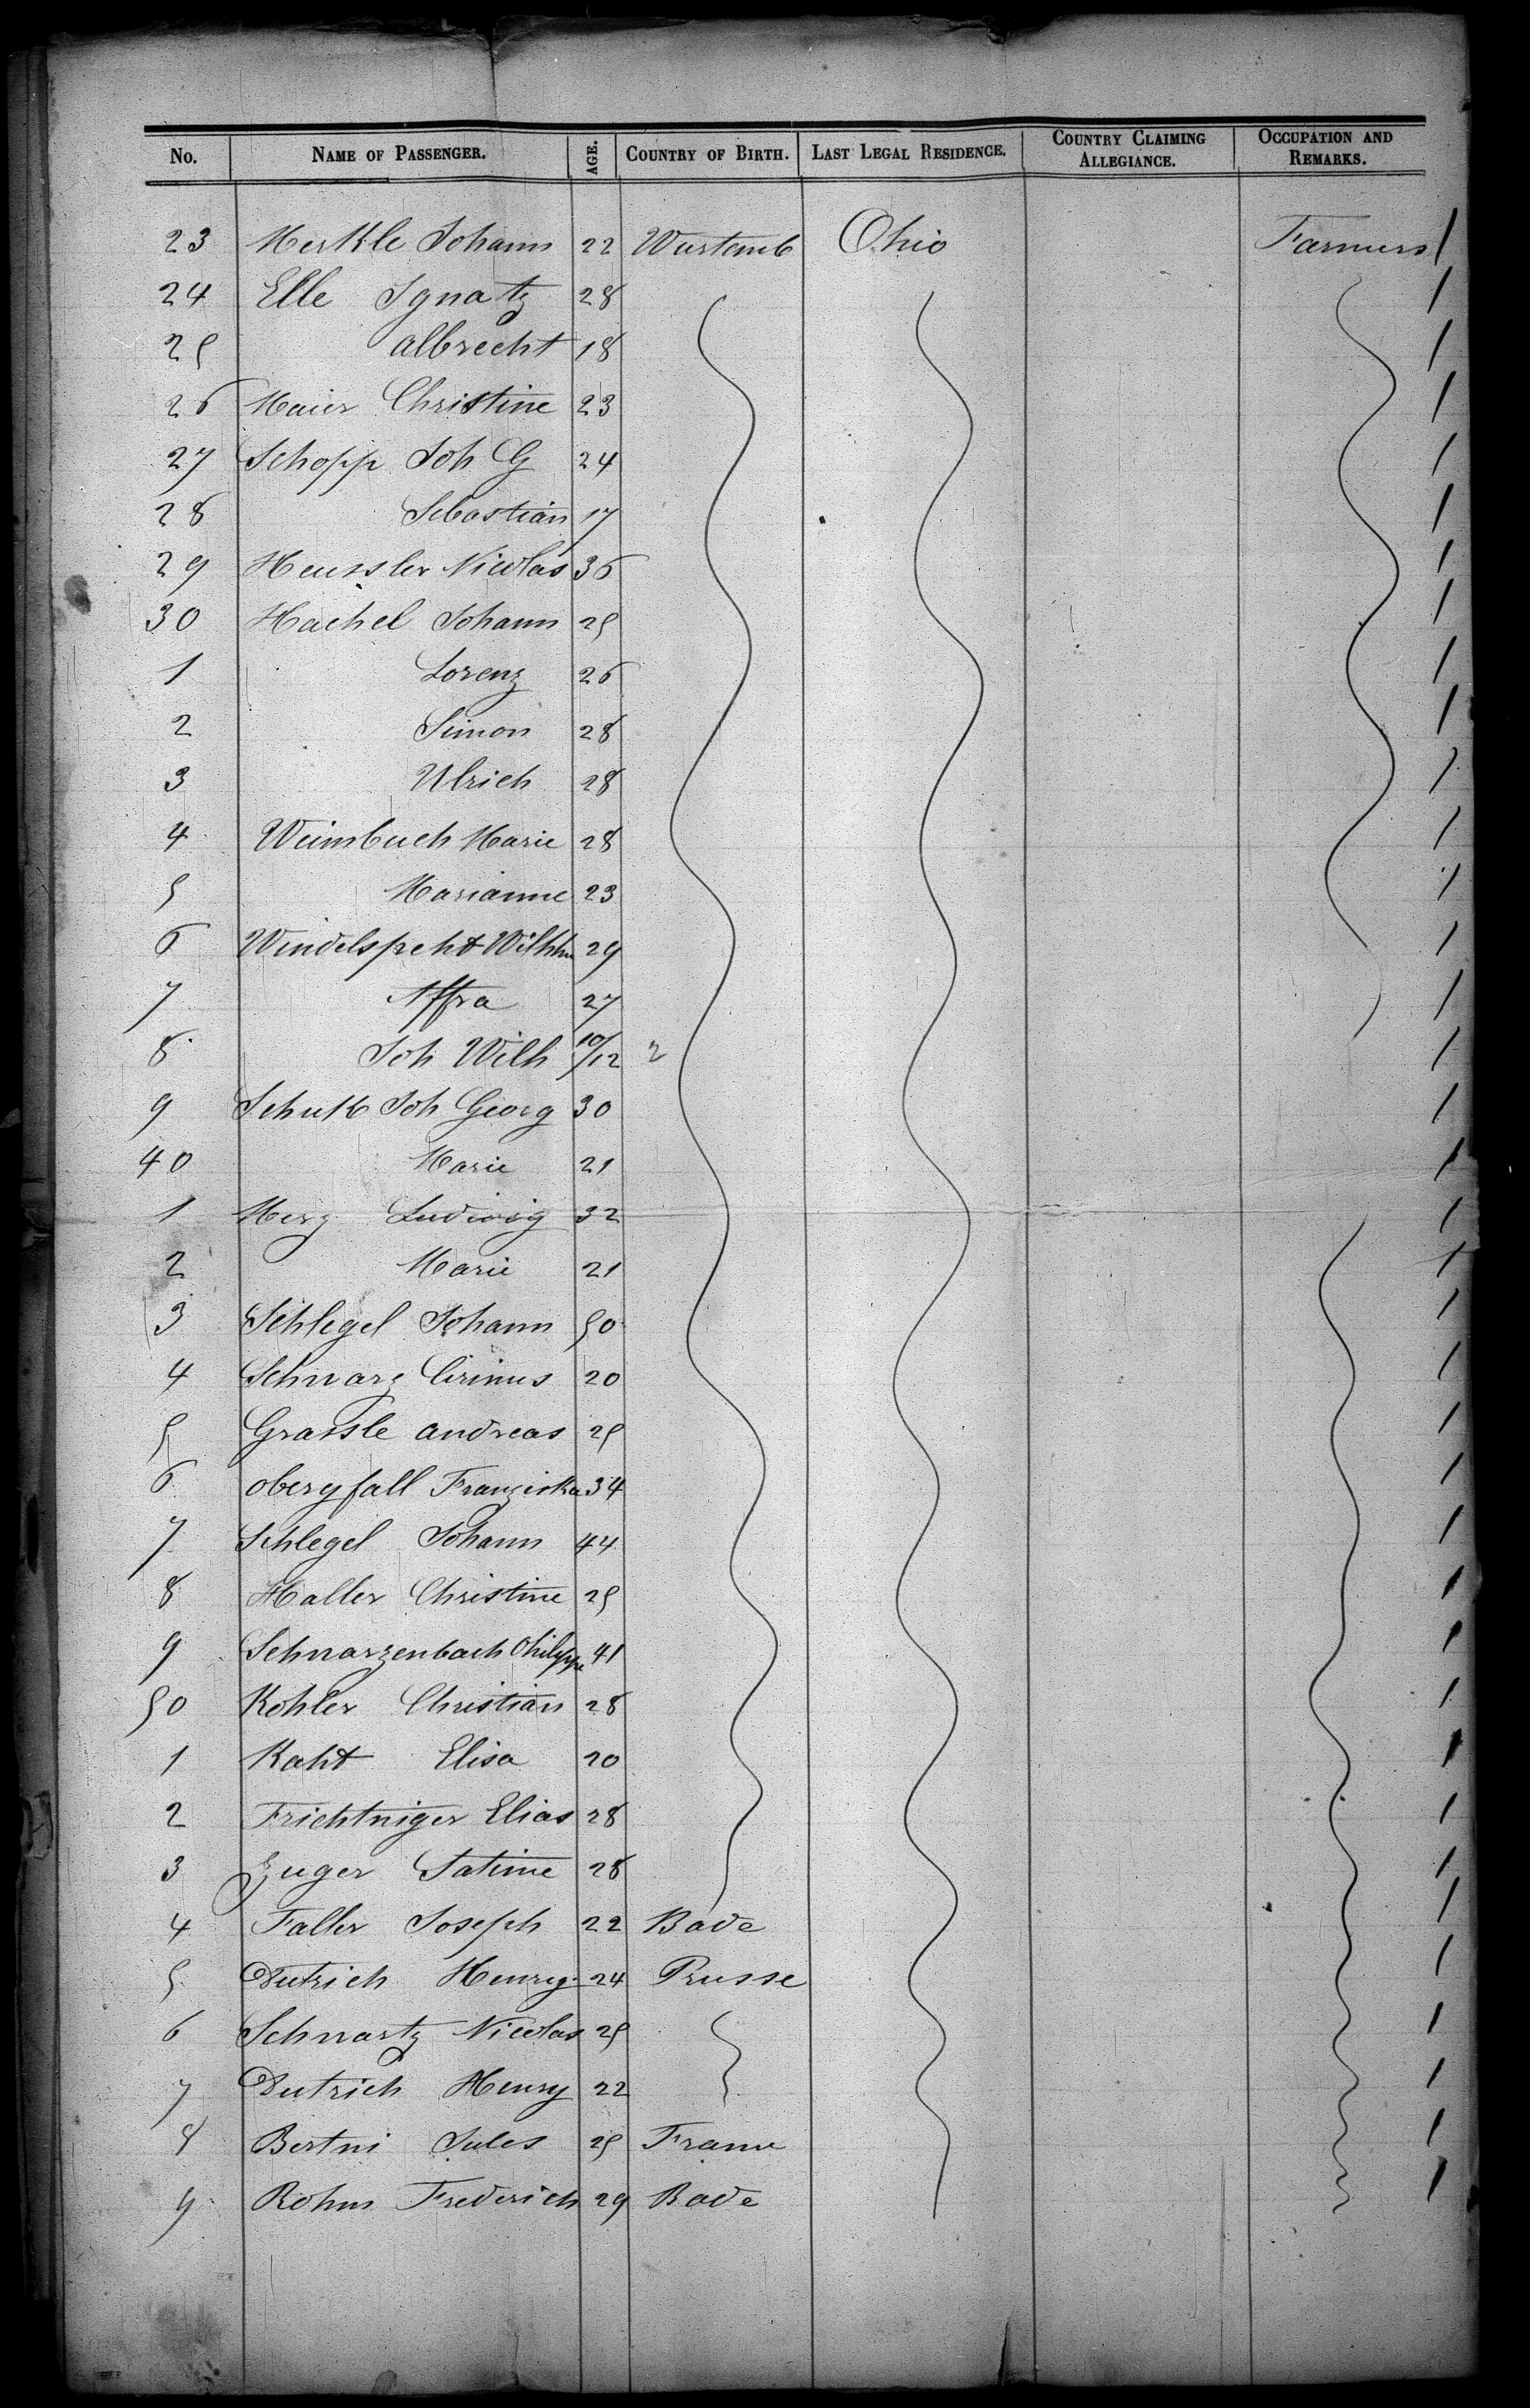 No. NAME OF PASSENGER. AGE. COUNTRY OF BIRTH. LAST LEGAL RESIDENCE. COUNTRY CLAIMING ALLEGIANCE. OCCUPATION AND REMARKS.
23 Merkle Johann 22 Wurtemb Ohio Farmers
24 Elle Ignatz 28
25 Albrecht 18
26 Maier Christine 23
27 Schopp Joh G 24
28 Sebastian 17
29 Heussler Nicolas 36
30 Hachel Johann 25
1 Lorenz 26
2 Simon 28
3 Ulrich 28
4 Weimbuch Marie 28
5 Marianne 23
6 Windelspeht Wilhhm 29
7 Affra 27
8 Joh Wilh 10/12 2
9 Joh Georg 30
40 Marie 21
1 Merz Ludiwig 32
2 Marie 21
3 Schlegel Johann 50
4 Schwarz Cirinus 20
5 Grassle Andreas 25
6 obergfall Franziska 34
7 Schlegel Johann 44
8 Haller Christine 25
9 Schwarzenbach Philippe 41
50 Kohler Christian 28
1 Kaht Elisa 20
2 Frichtniger Elias 28
3 Zuger 28
4 Faller Joseph 22 Bade
5 Dutrich Henry 24 Prusse
6 Schwartz Nicolas 25
7 Dutrich Henry 22
8 Bertni Jules 25 France
9 Rohm Frederich 29 Bade